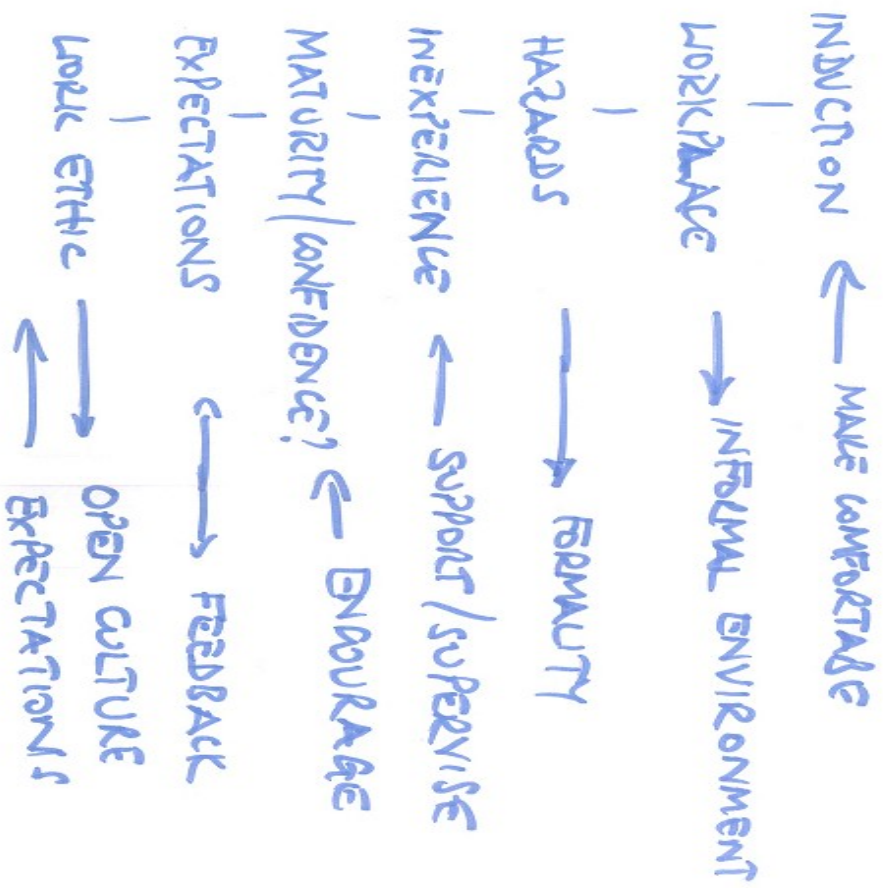 INDUCTION ← MAKE COMFORTABE
WORKPLACE → INFORMAL ENVIRONMENT
HAZARDS → FORMALITY
INEXPERIENCE ← SUPPORT/SUPERVISE
MATURITY/CONFIDENCE? ← ENCOURAGE
EXPECTATIONS ↔ FEEDBACK
WORK ETHIC → OPEN CULTURE
← EXPECTATIONS